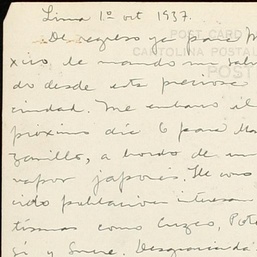 Lima 1º oct 1937.
De regreso ya para Mé
xico, le mando un salu
do desde esta preciosa
ciudad. Me embarco el
proximo día 6 para Man
zanillo, a bordo de un
vapor japonés. He cono
cido poblaciones interesan
tísimas como Cuzco, Poto
sí y Sucre. Desgraciada
POST CARD
CARTOLINA POSTAL
POST